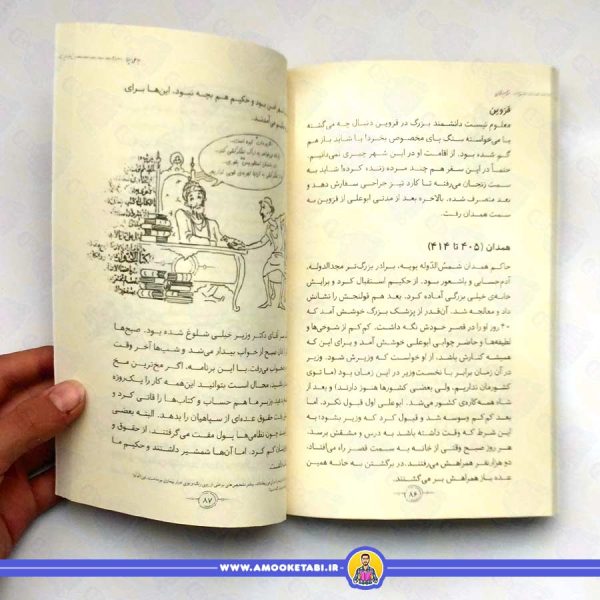 قزوین
معلوم نیست دانشمند بزرگ در قزوین دنبال چه می‌گشته
یا می‌خواسته سنگ پای مخصوص بخرد! یا شاید باز هم
گم شده بود. از اقامت او در این شهر چیزی نمی‌دانیم.
حتماً در این سفر هم چند مرده زنده کرده! شاید به
سمت زنجان می‌رفته تا کارد تیز جراحی سفارش دهد و
بعد منصرف شده. بالاخره بعد از مدتی ابوعلی از قزوین به
سمت همدان رفت.
همدان (۴۰۵ تا ۴۱۴)
حاکم همدان شمسُ‌الدّوله بویه، برادر بزرگ‌تر مجدالدوله،
آدم حسابی و باشعور بود. از حکیم استقبال کرد و برایش
خانه‌ی خیلی بزرگی آماده کرد. بعد هم قولنجش را نشانش
داد و معالجه شد. آن‌قدر از پزشک بزرگ خوشش آمد که
۴۰ روز او را در قصر خودش نگه داشت. کم کم از شوخی‌ها و
لطیفه‌ها و حاضر جوابی ابوعلی خوشش آمد و برای این که
همیشه کنارش باشد، از او خواست که وزیرش شود. وزیر
در آن زمان برابر با نخست‌وزیر در این زمان بود (ما توی
کشورمان نداریم، ولی بعضی کشورها هنوز دارند) و بعد از
شاه همه‌کاره‌ی کشور می‌شد. ابوعلی اول قبول نکرد. اما
بعد کم‌کم وسوسه شد و قبول کرد که وزیر بشود؛ به
این شرط که وقت داشته باشد به درس و مشقش برسد.
هر روز صبح وقتی از خانه به سمت قصر راه می‌افتاد،
دو هزار نفر همراهش می‌رفتند. در برگشتن به خانه همین
عده باز همراهش بر می‌گشتند.
۸۶
بود و حکیم هم بچه نبود. این‌ها برای
می‌آمدند.
سر آقای دکتر وزیر خیلی شلوغ شده بود. صبح‌ها
اذان صبح از خواب بیدار می‌شد و شب‌ها آخر وقت
می‌رفت. با این برنامه، اگر مخ‌ترین مخ
محال است بتوانید این‌همه کار را یک‌روزه
وزیر ما هم حساب و کتاب‌ها را قاتی کرد و
حقوق عده‌ای از سپاهیان را بدهد. البته بعضی
چون نظامی‌ها پول مفت می‌گرفتند، از حقوق و
کم کرد. اما آن‌ها شمشیر داشتند و حکیم ما
۸۷
WWW.AMOOKETABI.IR